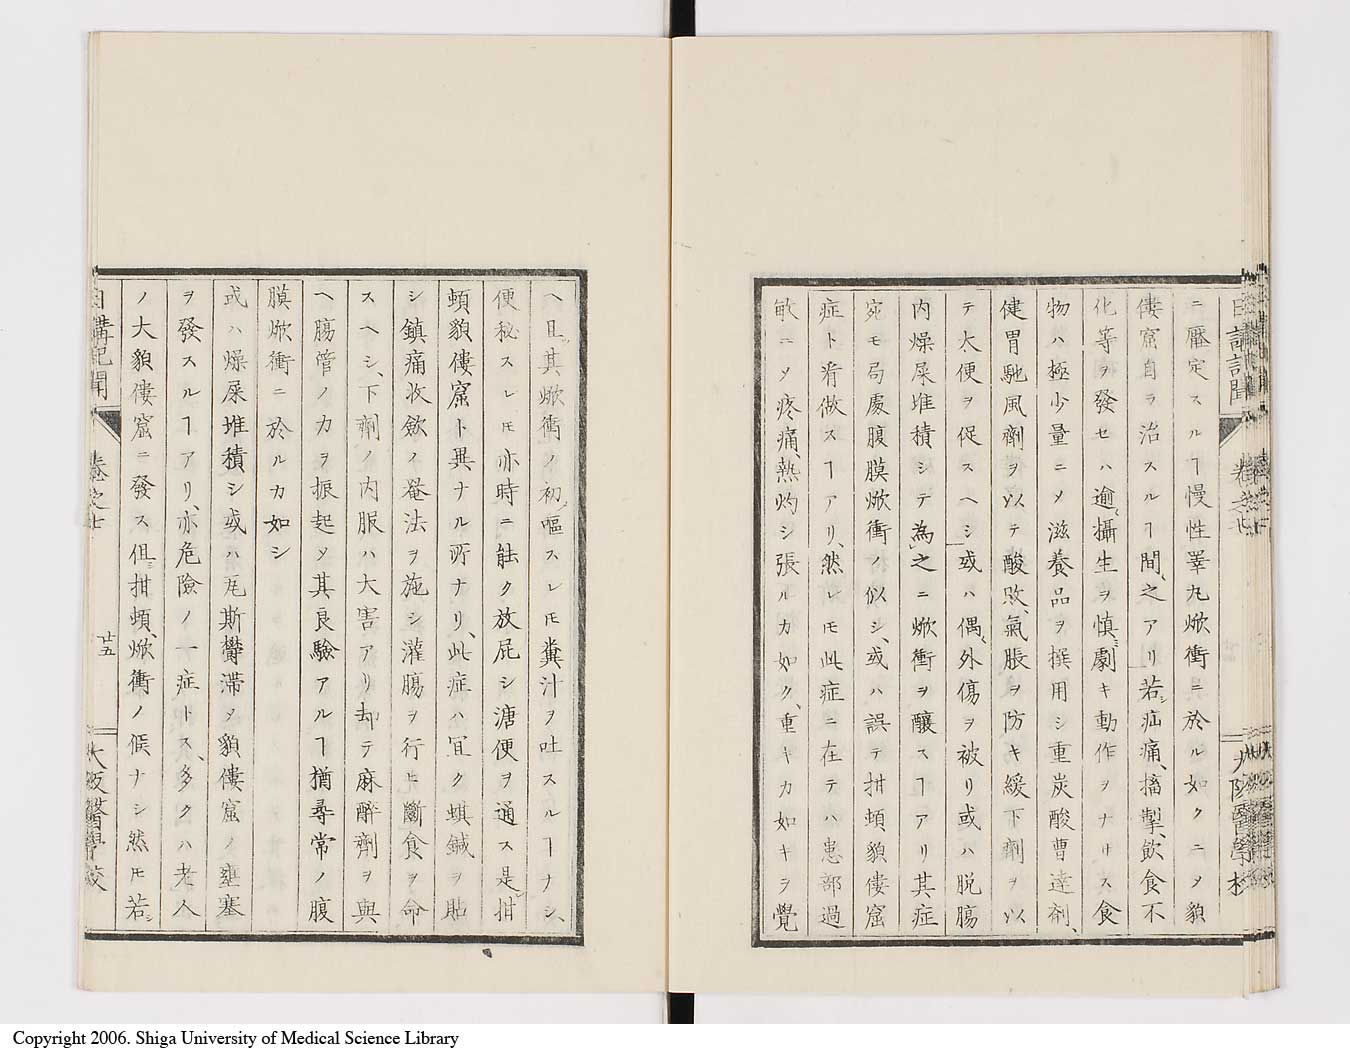 日講記聞
卷之七
大阪醫學校
ニ壓定スルヿ慢性睪丸焮衝ニ於ル如クニメ貌
僂窟自ラ治スルヿ間、之アリ若シ疝痛、搐掣、飲食不
化等ヲ發セハ逾〻攝生ヲ慎ミ劇キ動作ヲナサス食
物ハ極少量ニメ滋養品ヲ撰用シ重炭酸曹達劑、
健胃馳風劑ヲ以テ酸敗、氣脹ヲ防キ緩下劑ヲ以
テ大便ヲ促スヘシ或ハ偶〻外傷ヲ被リ或ハ脱膓
内燥屎堆積シテ為之ニ焮衝ヲ釀スヿアリ其症
宛モ局處腹膜焮衝ノ似シ、或ハ誤テ拑頓貌僂窟
症ト看做スヿアリ、然レ𪜈此症ニ在テハ患部過
敏ニメ疼痛、熱灼シ張ルカ如ク、重キカ如キヲ覺
ヘ且ツ其焮衝ノ初メ嘔スレ𪜈糞汁ヲ吐スルヿナシ、
便秘スレ𪜈亦時ニ能ク放屁シ溏便ヲ通ス是レ拑
頓貌僂窟ト異ナル所ナリ、此症ハ冝ク蜞鍼ヲ貼
シ鎮痛收歛ノ罨法ヲ施シ灌膓ヲ行ヒ斷食ヲ命
スヘシ、下劑ノ内服ハ大害アリ却テ麻醉劑ヲ與
ヘ膓管ノカヲ振起メ其良驗アルヿ猶尋常ノ腹
膜焮衝ニ於ルカ如シ
或ハ燥屎堆積シ或ハ瓦斯欝滞メ貌僂窟ノ壅塞
ヲ發スルヿアリ、亦危險ノ一症トス、多クハ老人
ノ大貌僂窟ニ發ス但シ拑頓、焮衝ノ候ナシ然𪜈若シ
日講記聞
卷之七
廿五
大阪醫學校
Copyright 2006. Shiga University of Medical Science Library